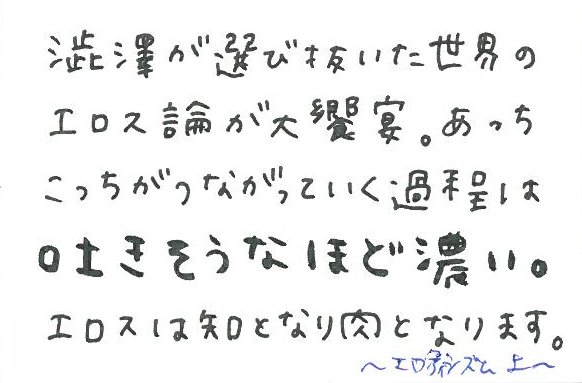 澁澤が選び抜いた世界の
エロス論が大饗宴。あっち
こっちがつながっていく過程は
吐きそうなほど濃い。
エロスは知となり肉となります。
～エロティシズム 上～